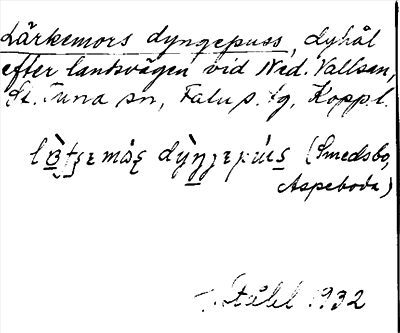 Lärkemors dyngepuss, dyhål
efter landsvägen vid Ned. Vallsan,
St. Tuna sn, Falu s. fg, Koppl.
(Smedsbo,
Aspeboda)
Ståhl 1932